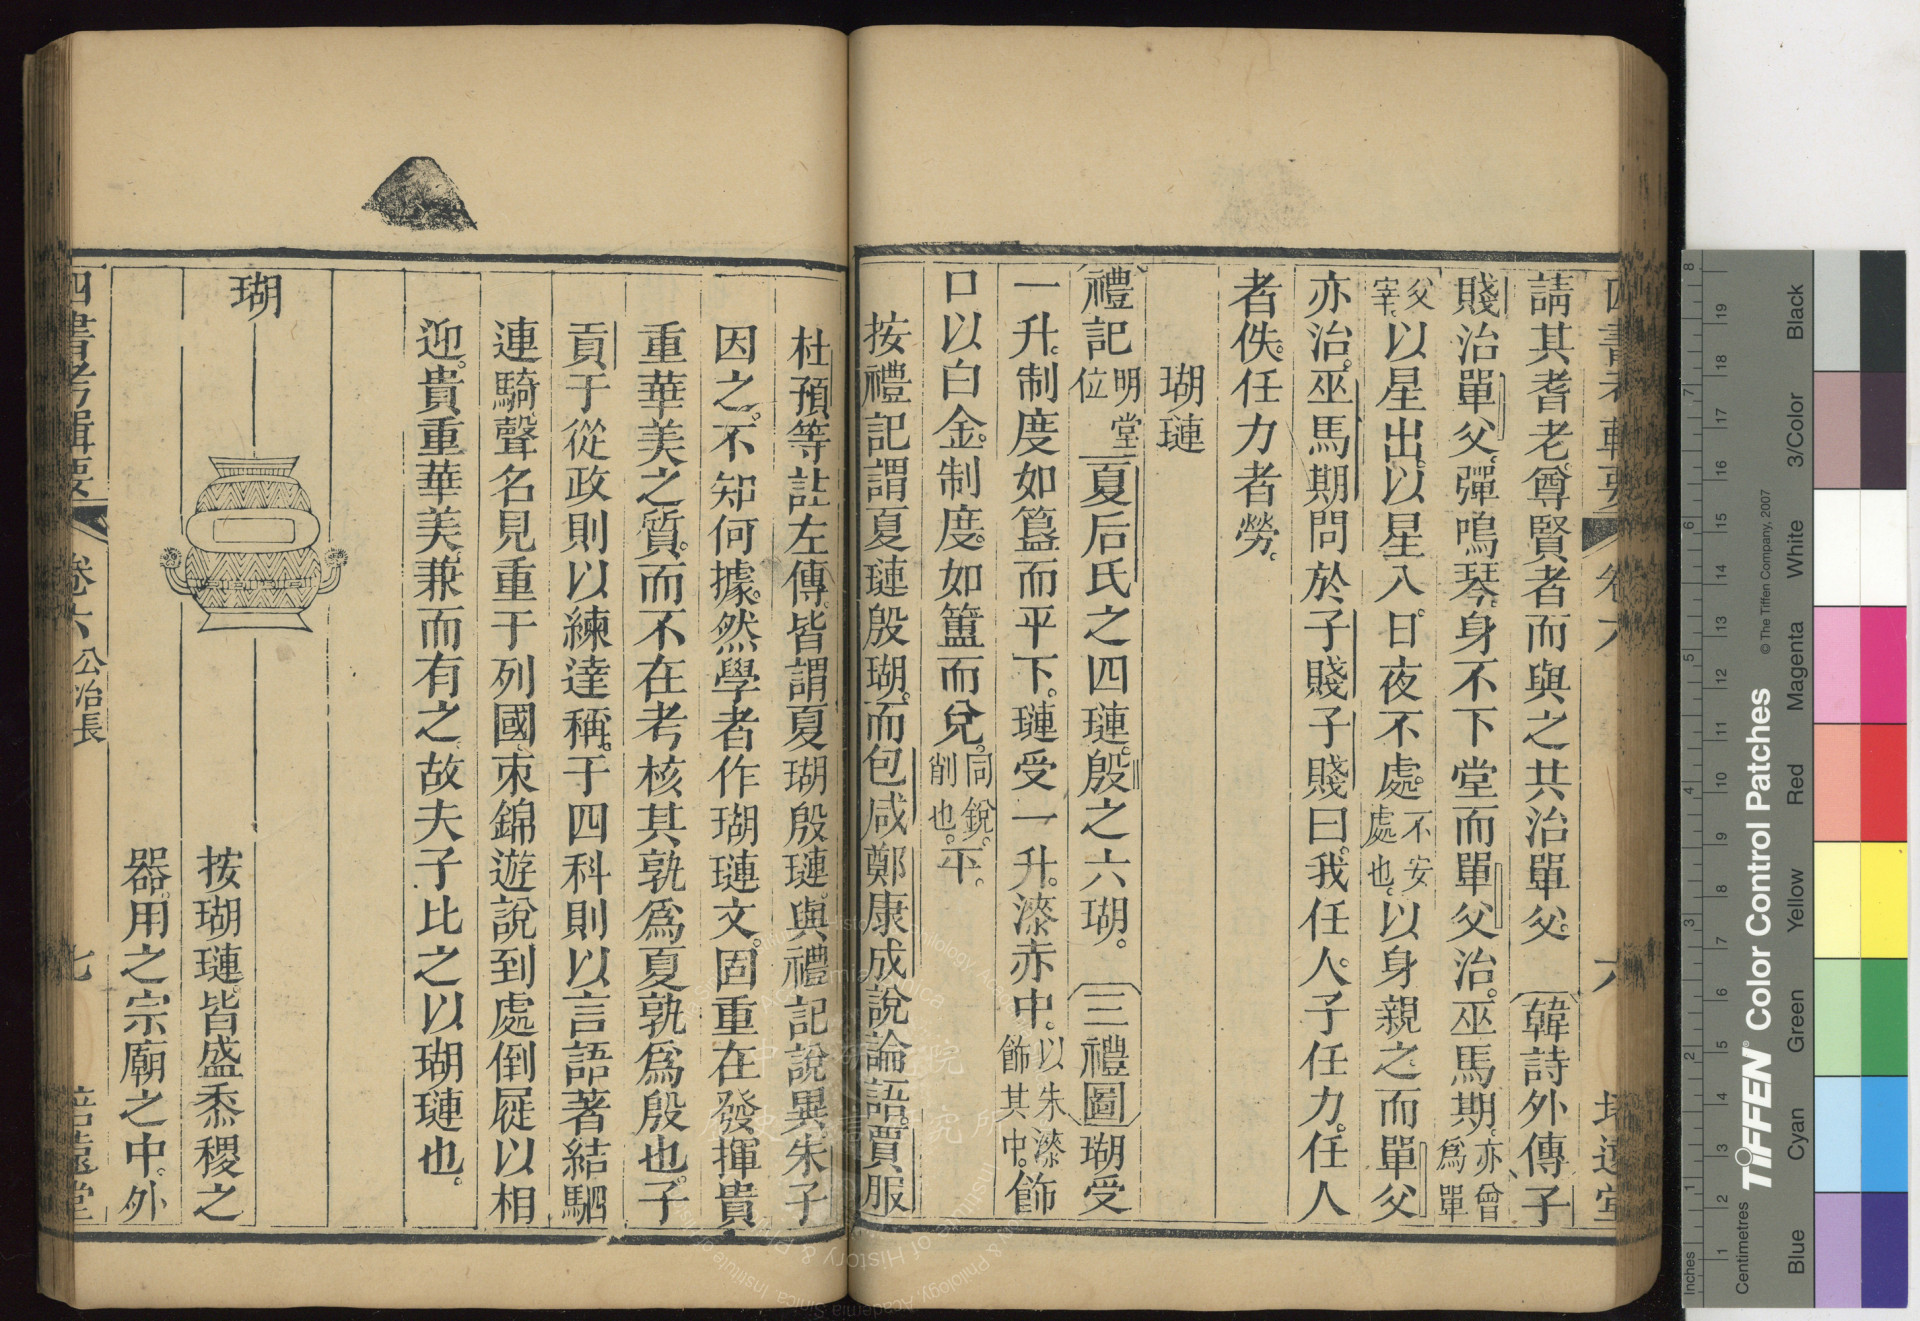 請其耆老尊賢者而與之共治單父。韓詩外傳子
賤治單父彈鳴琴身不下堂而單父治巫馬期亦曾爲單
父宰以星出以星入日夜不處不安處也以身親之而單父
亦治巫馬期問於子賤子賤曰我任人子任力任人
者佚任力者勞
瑚璉
禮記明堂位夏后氏之四璉殷之六瑚。三禮圖瑚受
一升制度如簋而平下璉受一升漆赤中以朱漆飾其中飾
口以白金制度如簠而兌同銳削也平
按禮記謂夏璉殷瑚而包咸鄭康成說論語賈服
杜預等註左傳皆謂夏瑚殷璉與禮記說異朱子
因之不知何據然學者作瑚璉文固重在發揮貴
重華美之質而不在考核其孰爲夏孰爲殷也子
貢于從政則以練達稱于四科則以言語著結駟
連騎聲名見重于列國束錦遊說到處倒屣以相
迎貴重華美兼而有之故夫子比之以瑚璉也
瑚
按瑚璉皆盛黍稷之
器用之宗廟之中外
四書考輯要 卷六 公冶長 七 培遠堂
四書考輯要 卷六 六 培遠堂
TIFFEN Color Control Patches
© The Tiffen Company, 2007
Centimetres
Inches
Blue Cyan Green Yellow Red Magenta White 3/Color Black